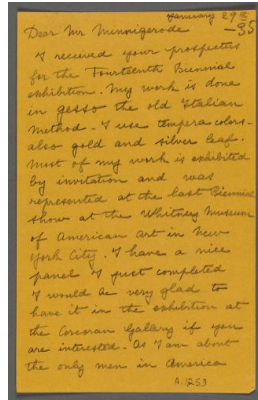 January 29th
-35
Dear Mr Minnigerode
I received your prospectus
for the Fourteenth Biennial
exhibition. My work is done
in gesso the old Italian
method. I use tempera colors-
also gold and silver leaf.
Most of my work is exhibited
by invitation and was
represented at the last Biennial
show at the Whitney Museum
of American Art in New
York City. I have a nice
panel I just completed
I would be very glad to
have it in the exhibition at
the Corcoran Gallery if you
are interested. As I am about
the only men in America
A.1253